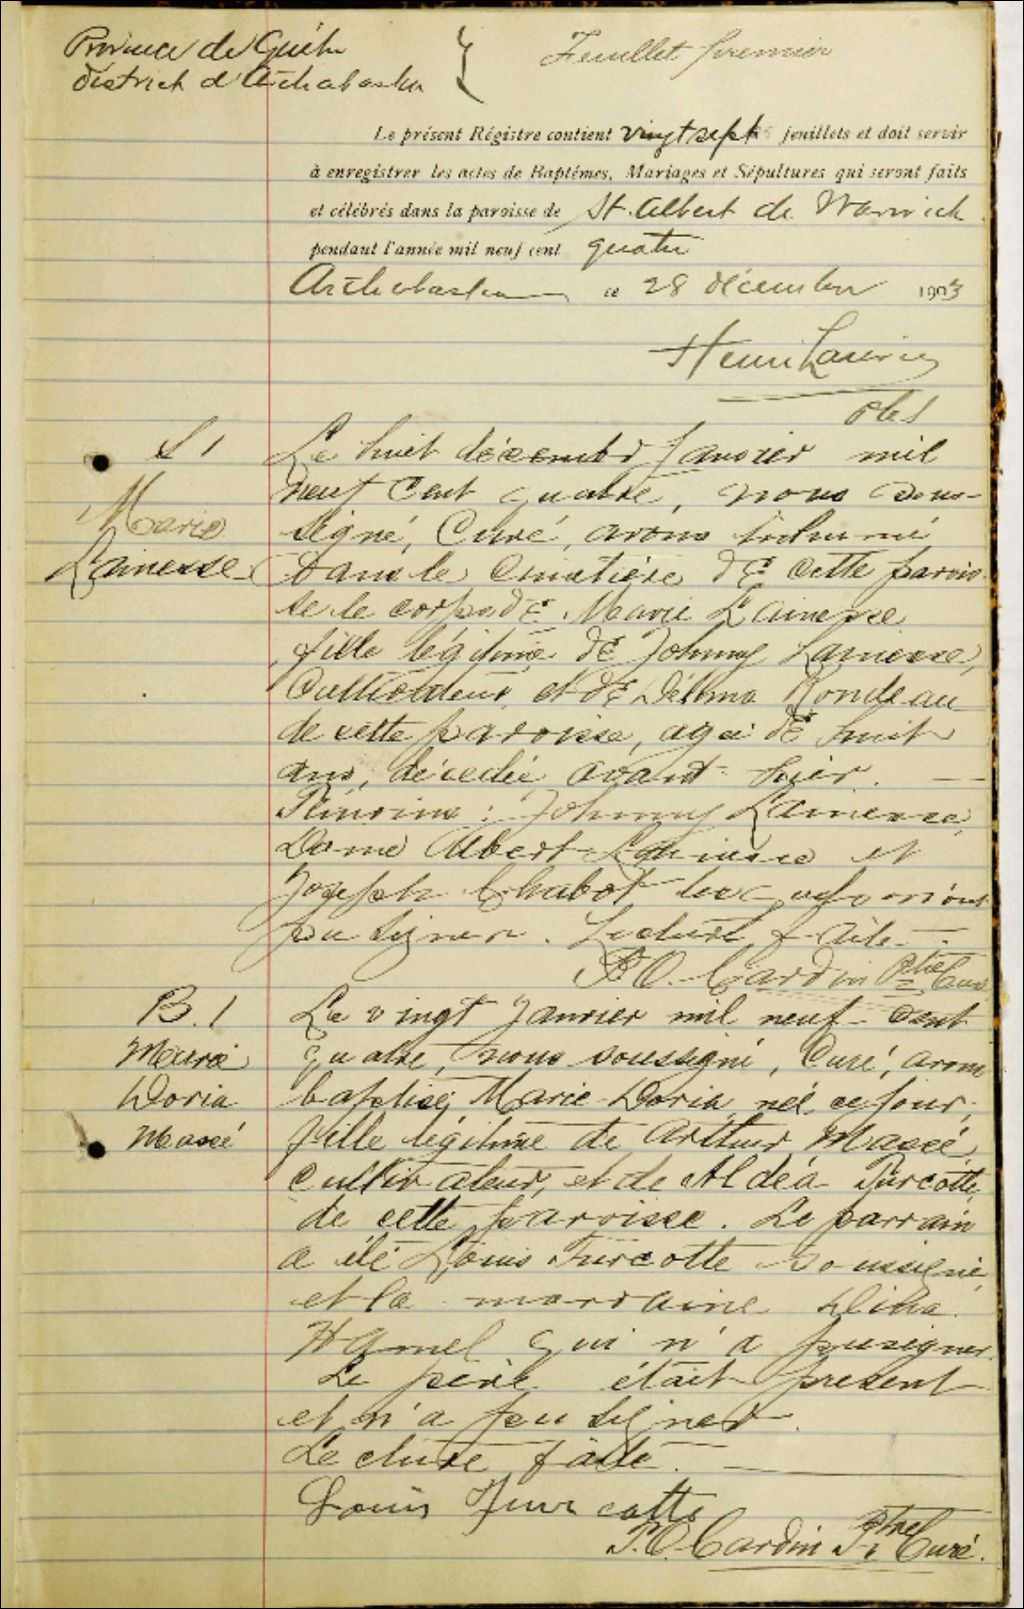 Province de Québec
district d'Arthabaska
Feuillet premier
Le présent Régistre contient vingt sept feuillets et doit servir
à enregistrer les actes de Baptêmes, Mariages et Sépultures qui seront faits
et célébrés dans la paroisse de St. Albert de Warwick
pendant l'année mil neuf cent quatre
Arthabaska ce 28 décembre 1903
Henri
S 1
Marie
Lainesse
Le huit décembr Janvier mil
neuf cent quatre, nous sous-
signé, Curé, avons inhumé
dans le cimetière de cette parois
se le corps de Marie Lainesse
fille légitime de Johnny Lainesse,
Cultivateur, et de Délima Rondeau
de cette paroisse, agée de huit
ans, décedée avant-hier.
Témoins : Johnny Lainesse,
Dame Albert Lainesse et
Joseph Chabot n'ont
pu signer. Lecture faite.
P.O. Cardin Ptre Curé
B. 1
Marie
Doria
Massé
Le vingt Janvier mil neuf-cent
quatre, nous soussigné, Curé, avons
baptisé Marie-Doria, néé ce jour,
fille légitime de Arthur Massé,
cultivateur, et de Aldéa Turcotte,
de cette paroisse. Le parrain
a été Louis Turcotte soussigné,
et la marraine
Hamel qui n'a pu signer.
Le père était présent
et n'a pu signer.
Lecture faite.
Louis Turcotte
P.O. Cardin Ptre Curé.